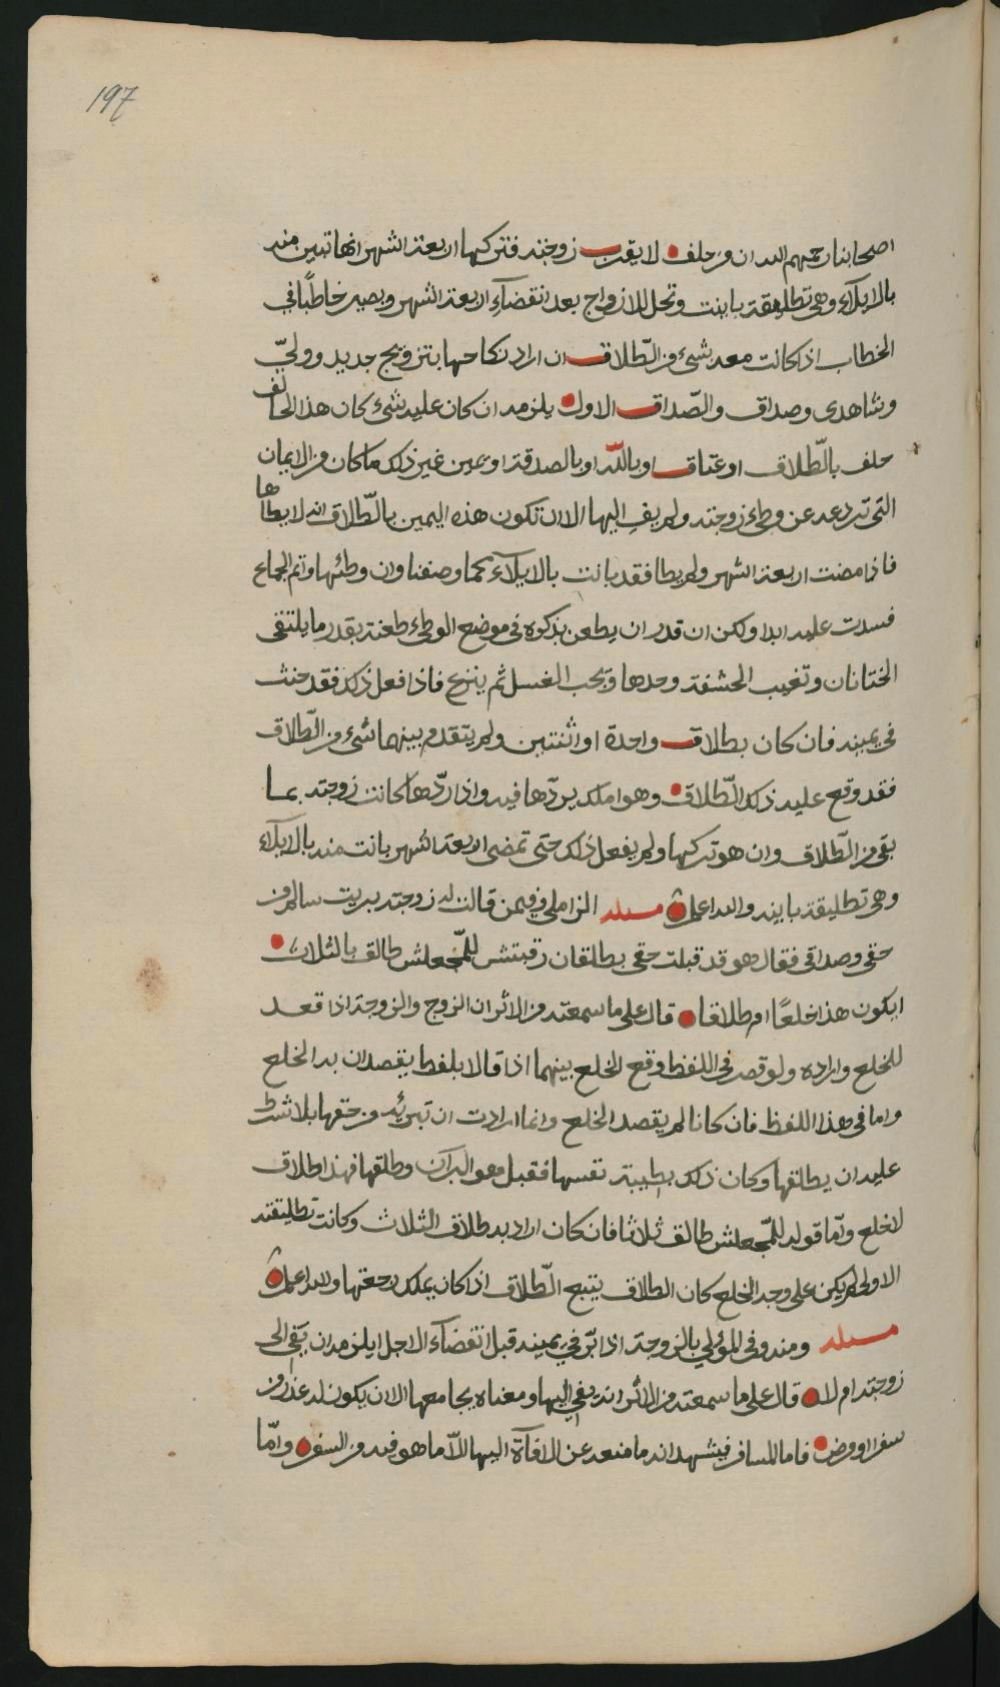 197
اصحابنا رحمهم الله ان من حلف لا يقرب زوجته فتركها اربعة اشهر انها تبين منه
بالايلاء وهي تطليقة باينت وتحل للازواج بعد انقضاء اربعة اشهر ويصير خاطبًا في
الخطاب اذا كانت معه شيء من الطّلاق ان اراد نكاحها بتزويج جديد ووليّ
وشاهدى وصداق والصّداق الاول يلزمه ان كان عليه شيء كان هذا الحالف
حلف بالطّلاق او عتاق او باللّه او بالصدقة او يمين غير ذلك ما كان من الايمان
التي تردعه عن وطيء زوجته ولم يفِ اليها الا ان تكون هذه اليمين بالطّلاق انه لا يطاها
فاذا مضت اربعة اشهر ولم يطا فقد بانت بالايلاء كما وصفنا وان وطئها واتم الجماع
فسدت عليه ابدا ولكن ان قدر ان يطعن بذكره في موضع الوطيء طعنة بقدر ما يلتقى
الختانان وتغيب الحشفة وحدها ويجب الغسل ثم ينزع فاذا فعل ذلك فقد حنث
في يمينه فان كان بطلاق واحدة او اثنتين ولم يتقدم بينهما شيء من الطّلاق
فقد وقع عليه ذلك الطّلاق وهو املك بردّها فيه واذا ردّها كانت زوجته بما
بقي من الطّلاق وان هو تركها ولم يفعل ذلك حتى تمضى اربعة اشهر بانت منه بالايلاء
وهي تطليقة باينه والله اعلم مسله الزاملي فيمن قالت له زوجته بريت سالم من
حقي وصداقي فقال هو قد قبلت حقي بطالقان رقبتش للمّجعلش طالق بالثلاث
ايكون هذا خلعًا ام طلاقا قال على ما سمعته من الاثر ان الزوج والزوجة اذا قعد
للخلع واراده ولو قصر في اللفظ وقع الخلع بينهما اذا قالا بلفظ يقصدان به الخلع
واما في هذا اللفظ فان كانا لم يقصد الخلع وانما ارادت ان تبرئه من حقها بلا شرط
عليه ان يطلقها وكان ذلك بطيبة نفسها فقبل هو البرآن وطلقها فهذا طلاق
لا خلع وامّا قوله للمّجعلش طالق ثلاثا فان كان اراد به طلاق الثلاث وكانت تطليقته
الاولى لم يكن على وجه الخلع كان الطلاق يتبع الطّلاق اذا كان يملك رجعتها والله اعلم
مسله ومنه وفي المؤلي بالزوجة اذا برّ في يمينه قبل انقضاء الاجل ايلزمه ان يفي الى
زوجته ام لا قال على ما سمعته من الاثر انه يفي اليها ومعناه يجامعها الا ان يكون له عذر من
سفر او مرض فاما المسافر فيشهد انه ما منعه عن الافاة اليها الاّ ما هو فيه من السفر وامّا